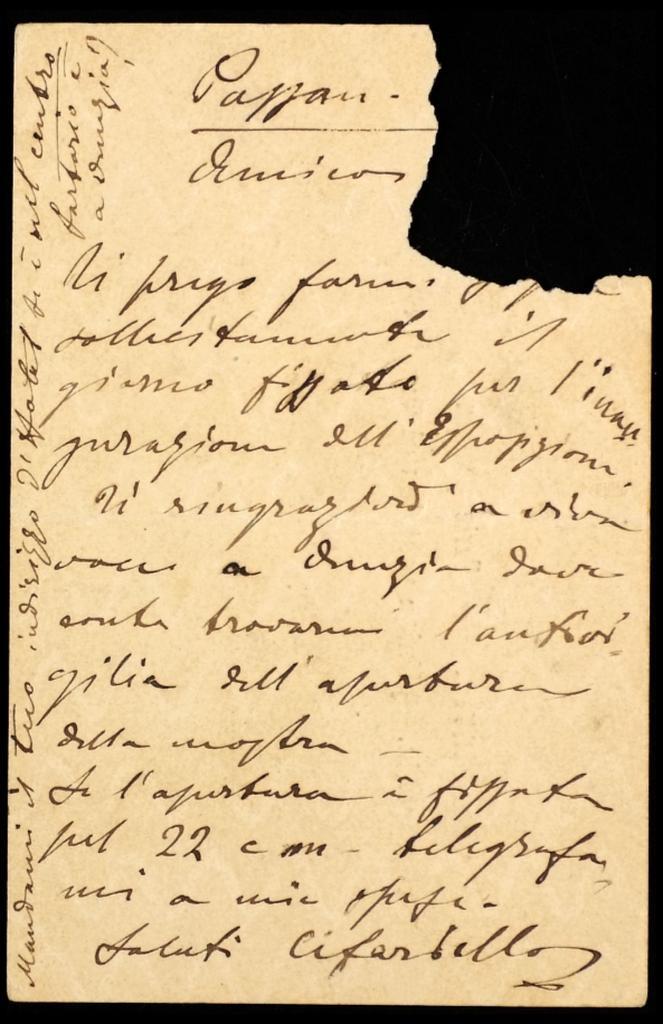 Amico
Ti prego farmi
sollecitamente il
giorno fissato per l'inau-
gurazione dell'Esposizione.
Ti ringrazierò a viva
voce a Venezia dove
conto trovarmi l'antivi-
gilia dell'apertura
della mostra —
Se l'apertura è fissata
pel 22 c m - telegrafa-
mi a mie spese -
Saluti Cifariello
Mandami il tuo indirizzo d'Hotel se è nel centro
a Venezia?